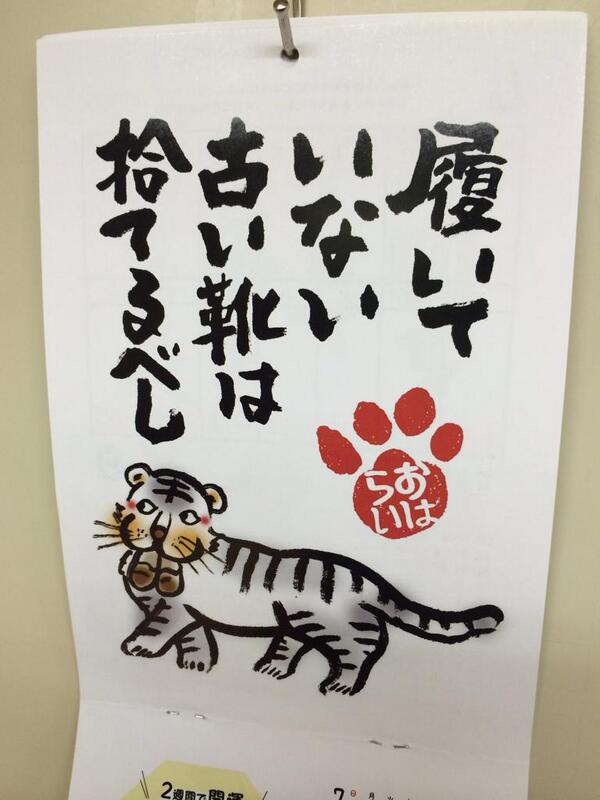 履いて
いない
古い靴は
捨てるべし
おは
らい
2週間で開運
7
日 月